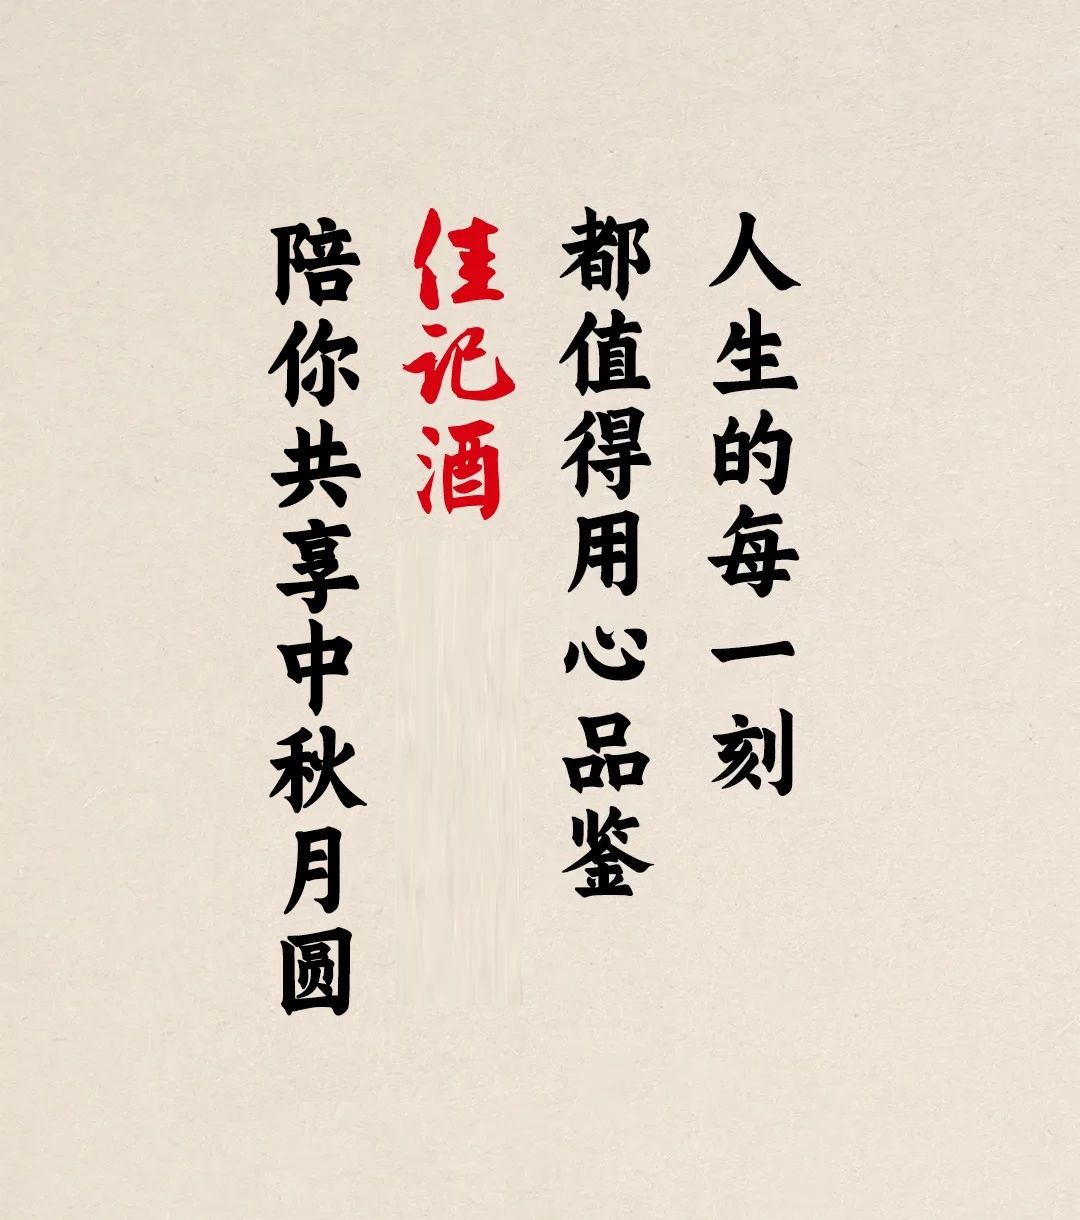 人生的每一刻
都值得用心品鉴
佳记酒
陪你共享中秋月圆